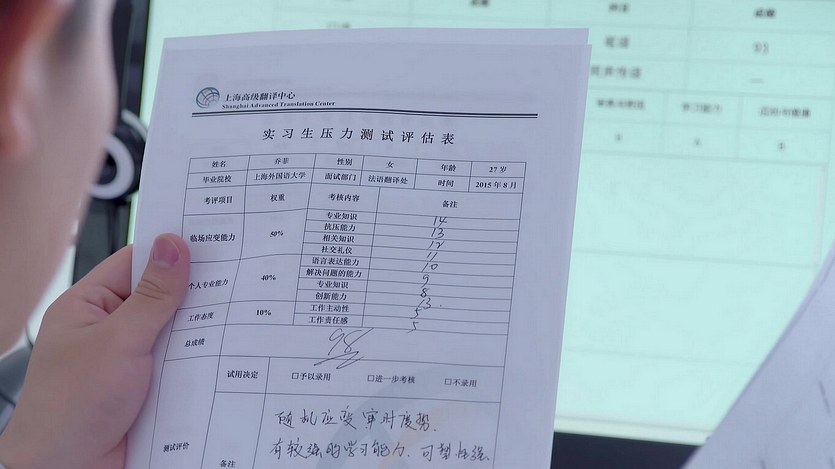 上海高级翻译中心
Shanghai Advanced Translation Center
实习生压力测试评估表
姓名 乔菲 性别 女 年龄 27岁
毕业院校 上海外国语大学 面试部门 法语翻译处 时间 2015年8月
考评项目 权重 考核内容 备注
临场应变能力 50% 专业知识 14
抗压能力 13
相关知识 12
社交礼仪 11
个人专业能力 40% 语言表达能力 10
解决问题的能力 9
专业知识 8
创新能力 13.
工作态度 10% 工作主动性 5
工作责任感 5
总成绩 98
测试评价 试用决定 □予以录用 □进一步考核 □不录用
备注 随机应变 审时度势.
有较强的学习能力、可塑性强